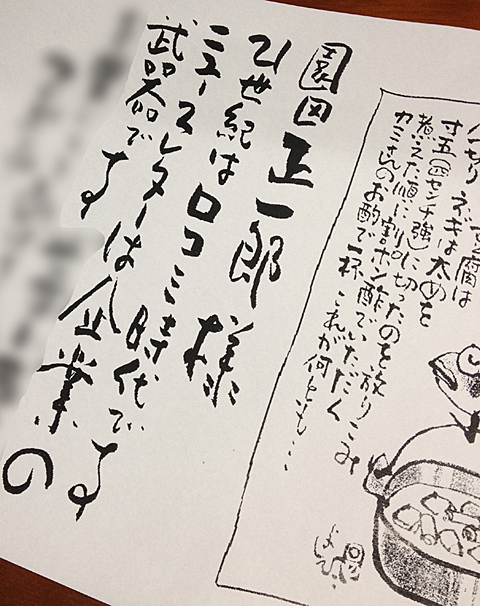 豆腐は
切り ネギは太めを
寸五(四センチ強)に切ったのを放りこみ
煮えた順に割ポン酢でいただく
カミさんのお酌で一杯 これが何とも…
園田正一郎 様
21世紀は口コミ時代です
ニュースレターは企業の
武器です